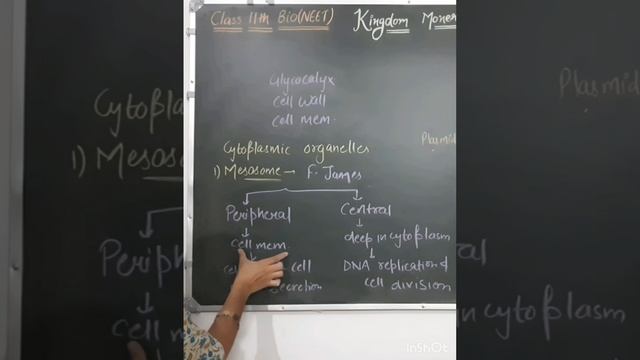 Class 11th Bio(NEET) Kingdom Moner
Glycocalyx
Cell Wall
Cell mem.
Plasmid
Cytoplasmic organelles
1) Mesosome → F. James
Peripheral Central
Cell mem. deep in cytoplasm
cell DNA replication &
secretion cell division
InShOt